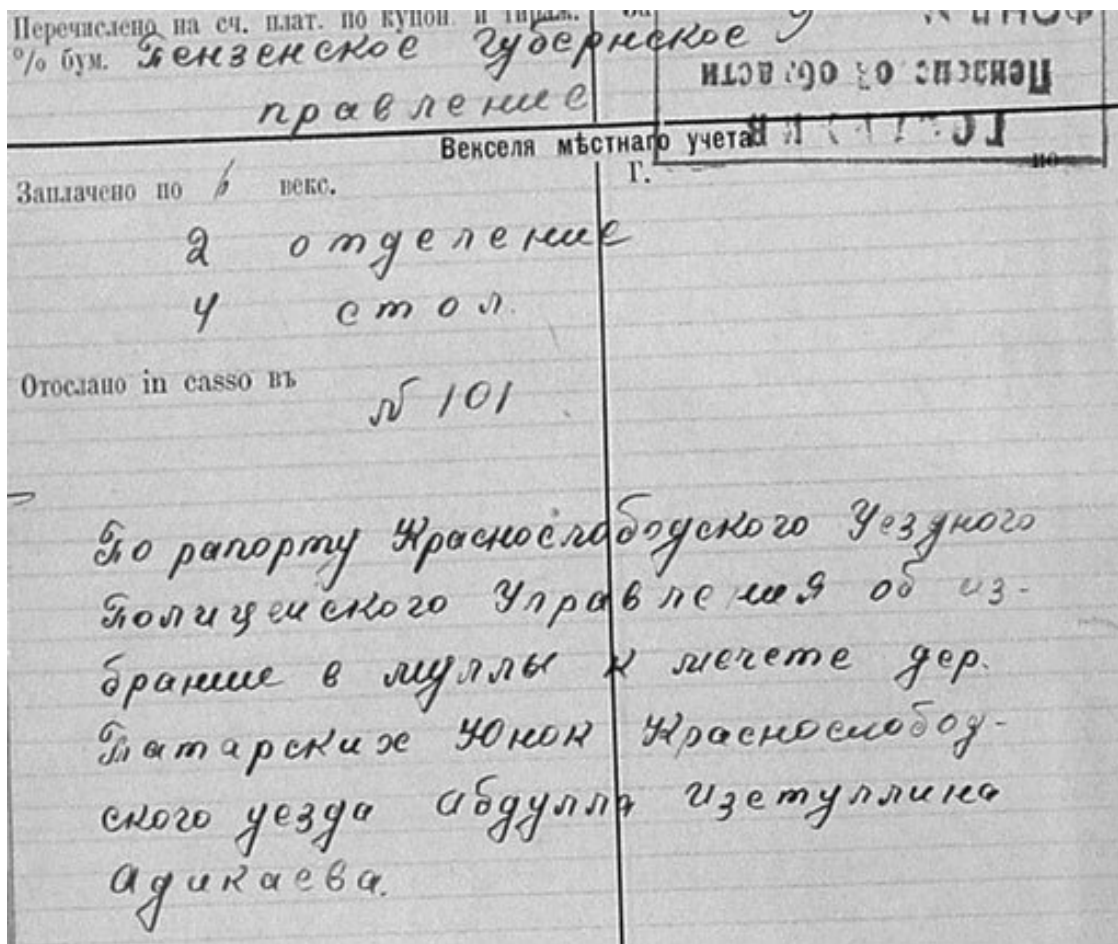 Перечислено на сч. плат. по купон. и тираж.
% бум. Пензенское губернское
правление
Пензенской области
Векселя мѣстнаго учета
Заплачено по векс.
Г.
по
2 отделение
4 стол.
Отослано in casso въ
№ 101
По рапорту Краснослободского Уездного
Полицейского Управления об из-
брание в муллы к мечете дер.
Татарских Юнок Краснослобод-
ского уезда Абдулла Изетуллина
Адикаева.